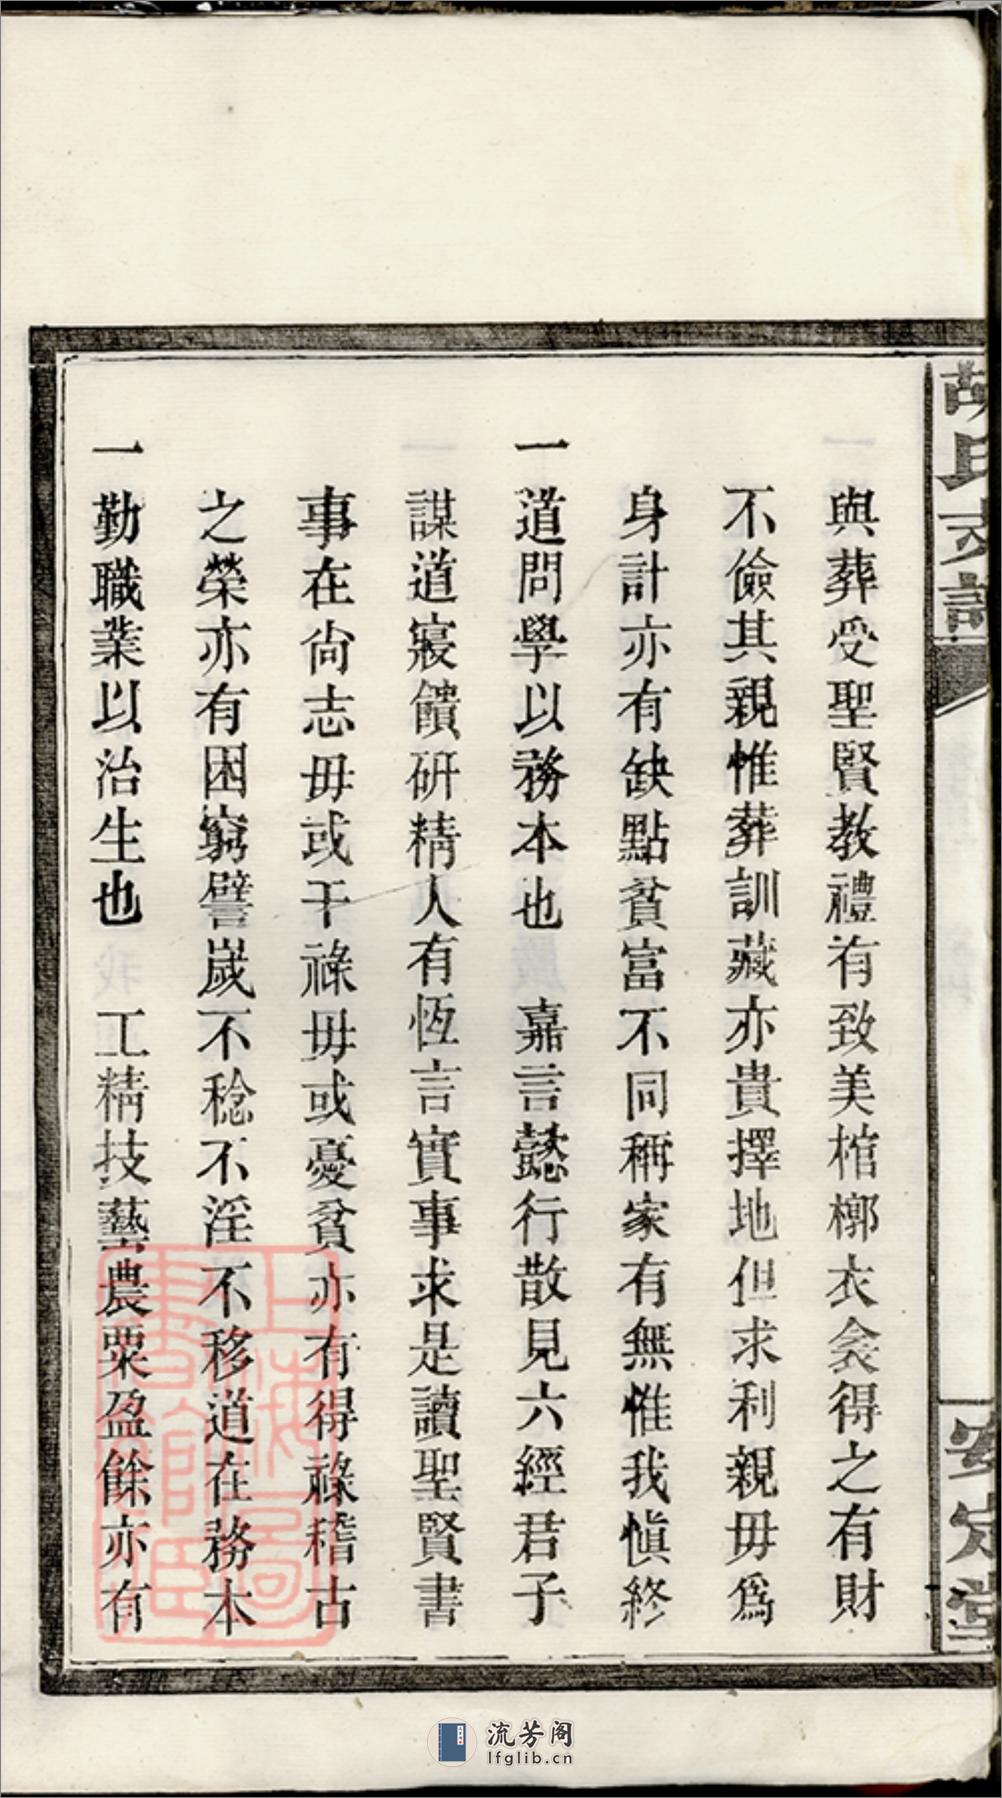 胡氏支譜
安定堂
與葬受聖賢教禮有致美棺槨衣衾得之有財
不儉其親惟葬訓藏亦貴擇地但求利親毋爲
身計亦有缺點貧富不同稱家有無惟我愼終
一道問學以務本也　嘉言懿行散見六經君子
謀道寢饋研精人有恆言實事求是讀聖賢書
事在尙志毋或干祿毋或憂貧亦有得祿稽古
之榮亦有困窮譬嵗不稔不淫不移道在務本
一勤職業以治生也　工精技藝農粟盈餘亦有
上海圖書館藏
流芳阁
lfglib.cn